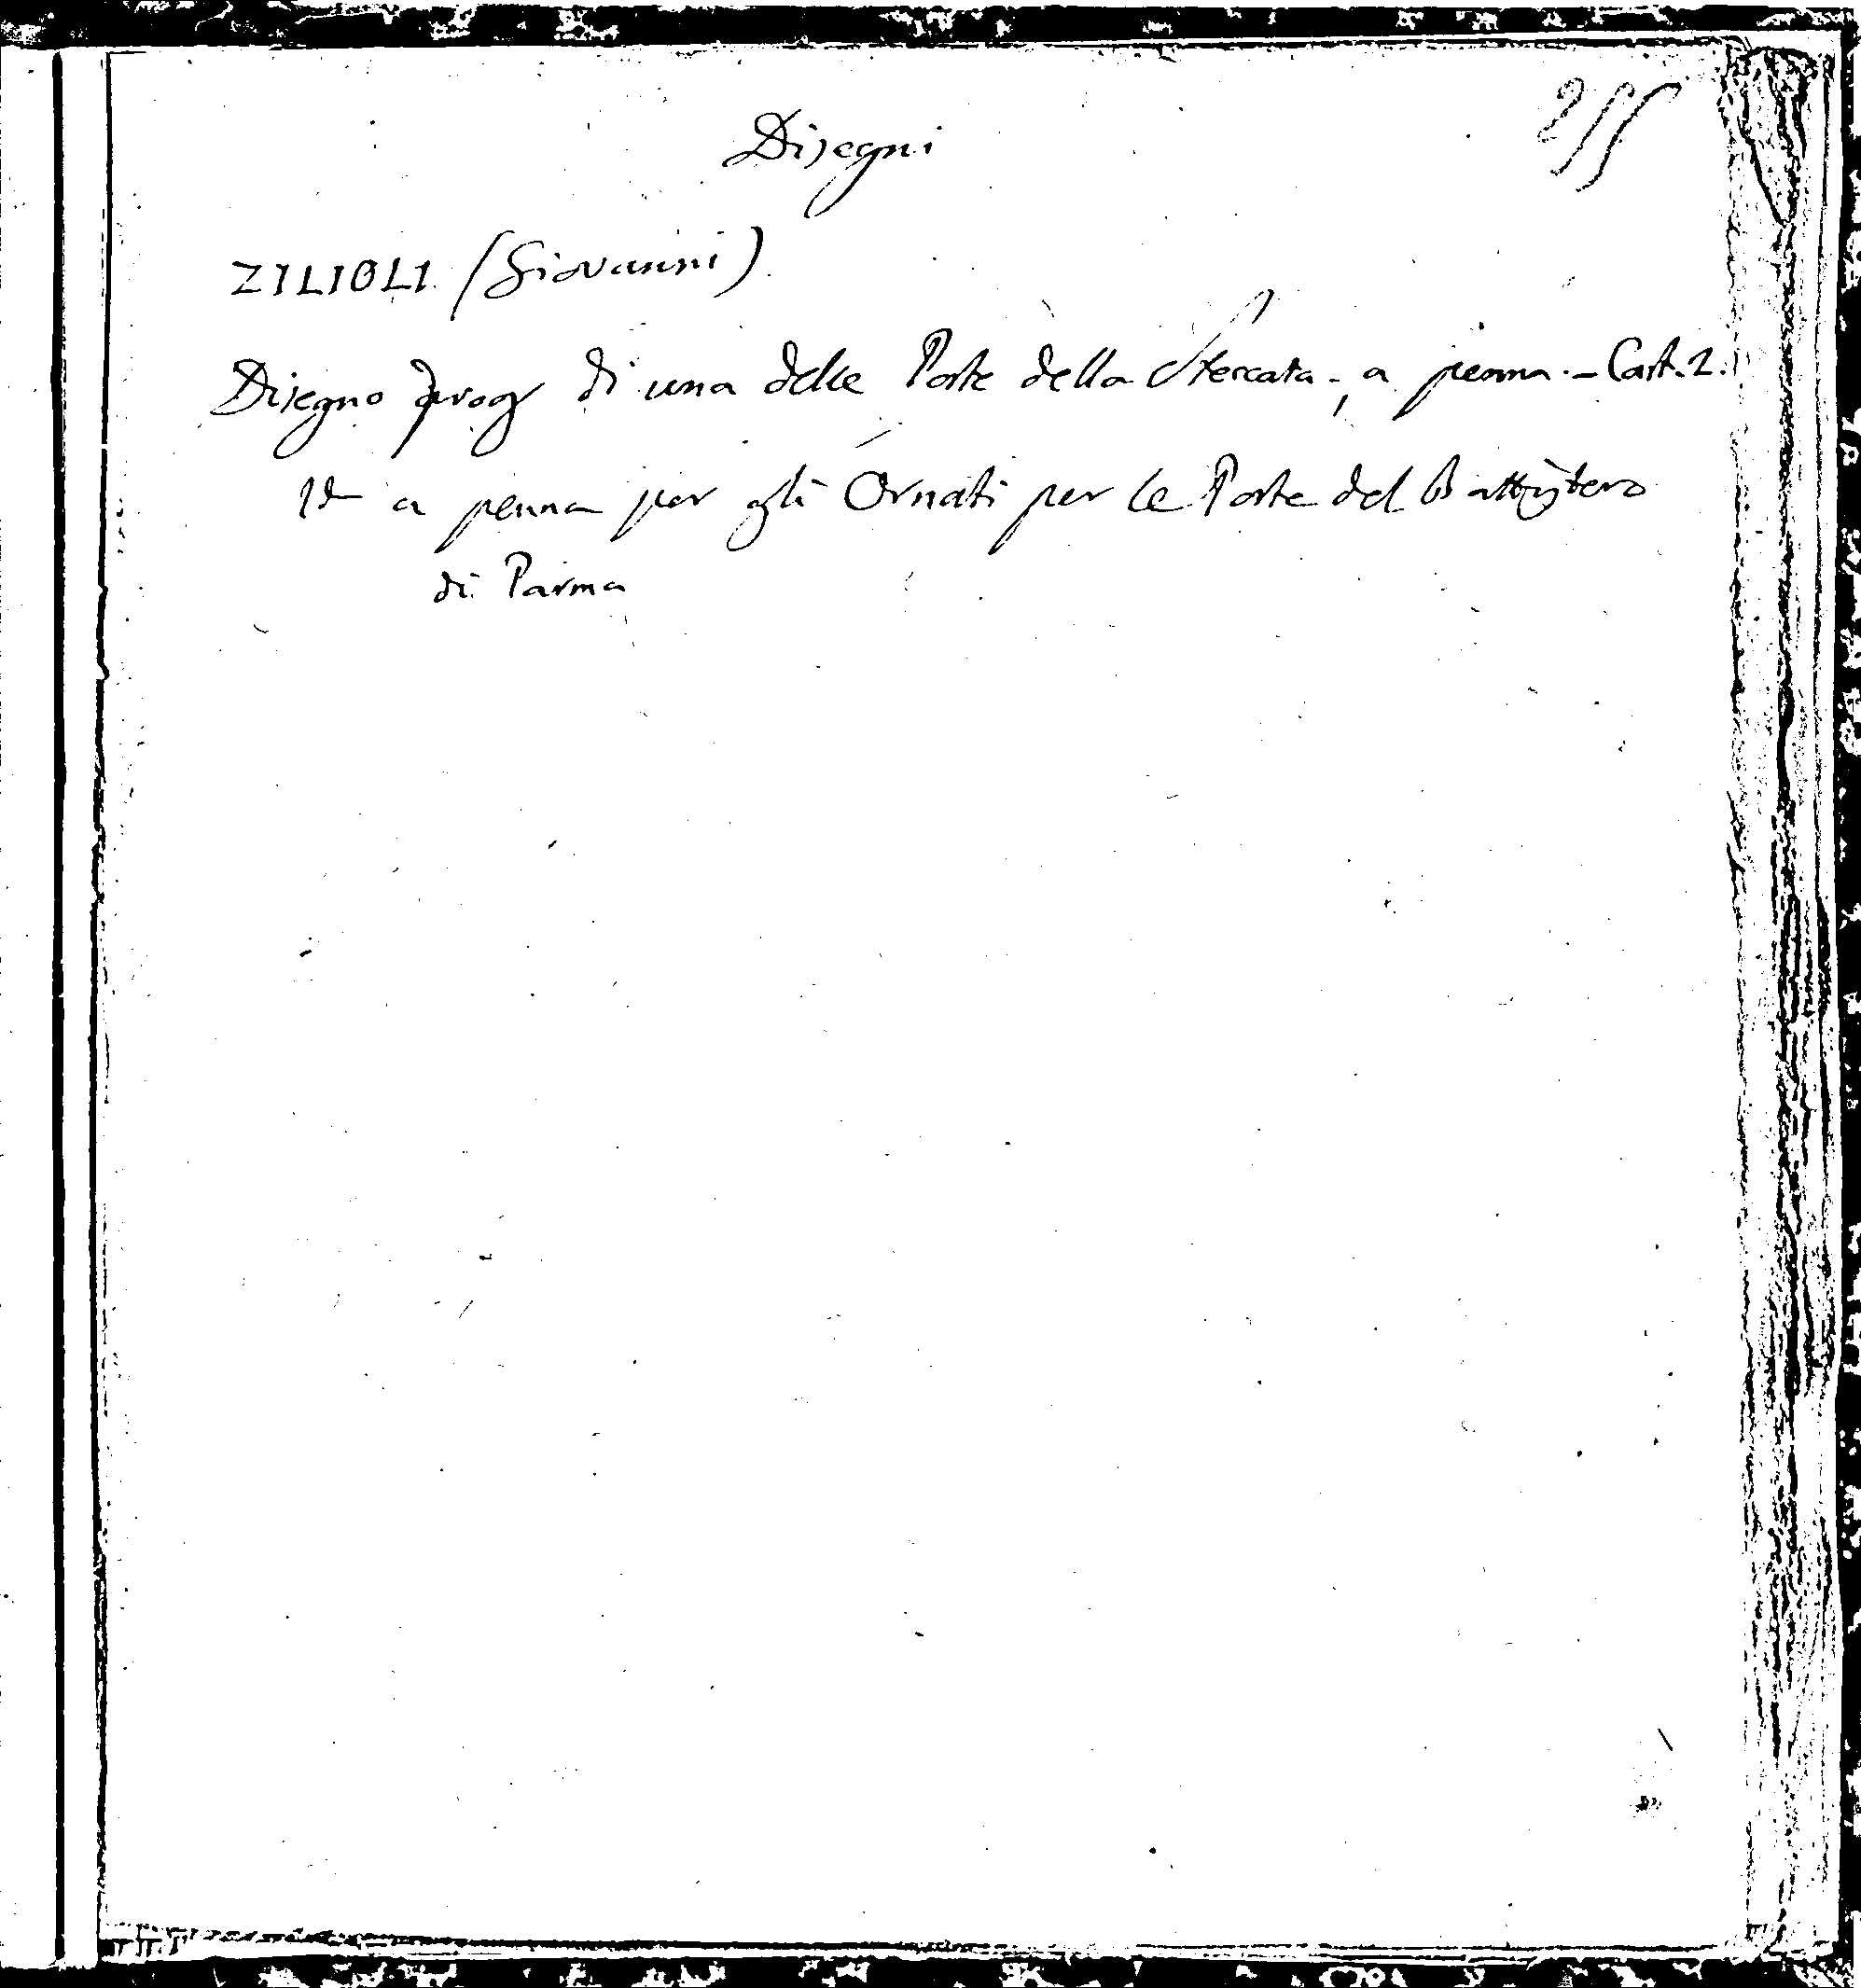 Disegni
255
ZILIOLI (Giovanni)
Disegno di una delle Porte della Steccata, a penna. - Cart. 2.
Id a penna per gli Ornati per le Porte del Battistero
di Parma